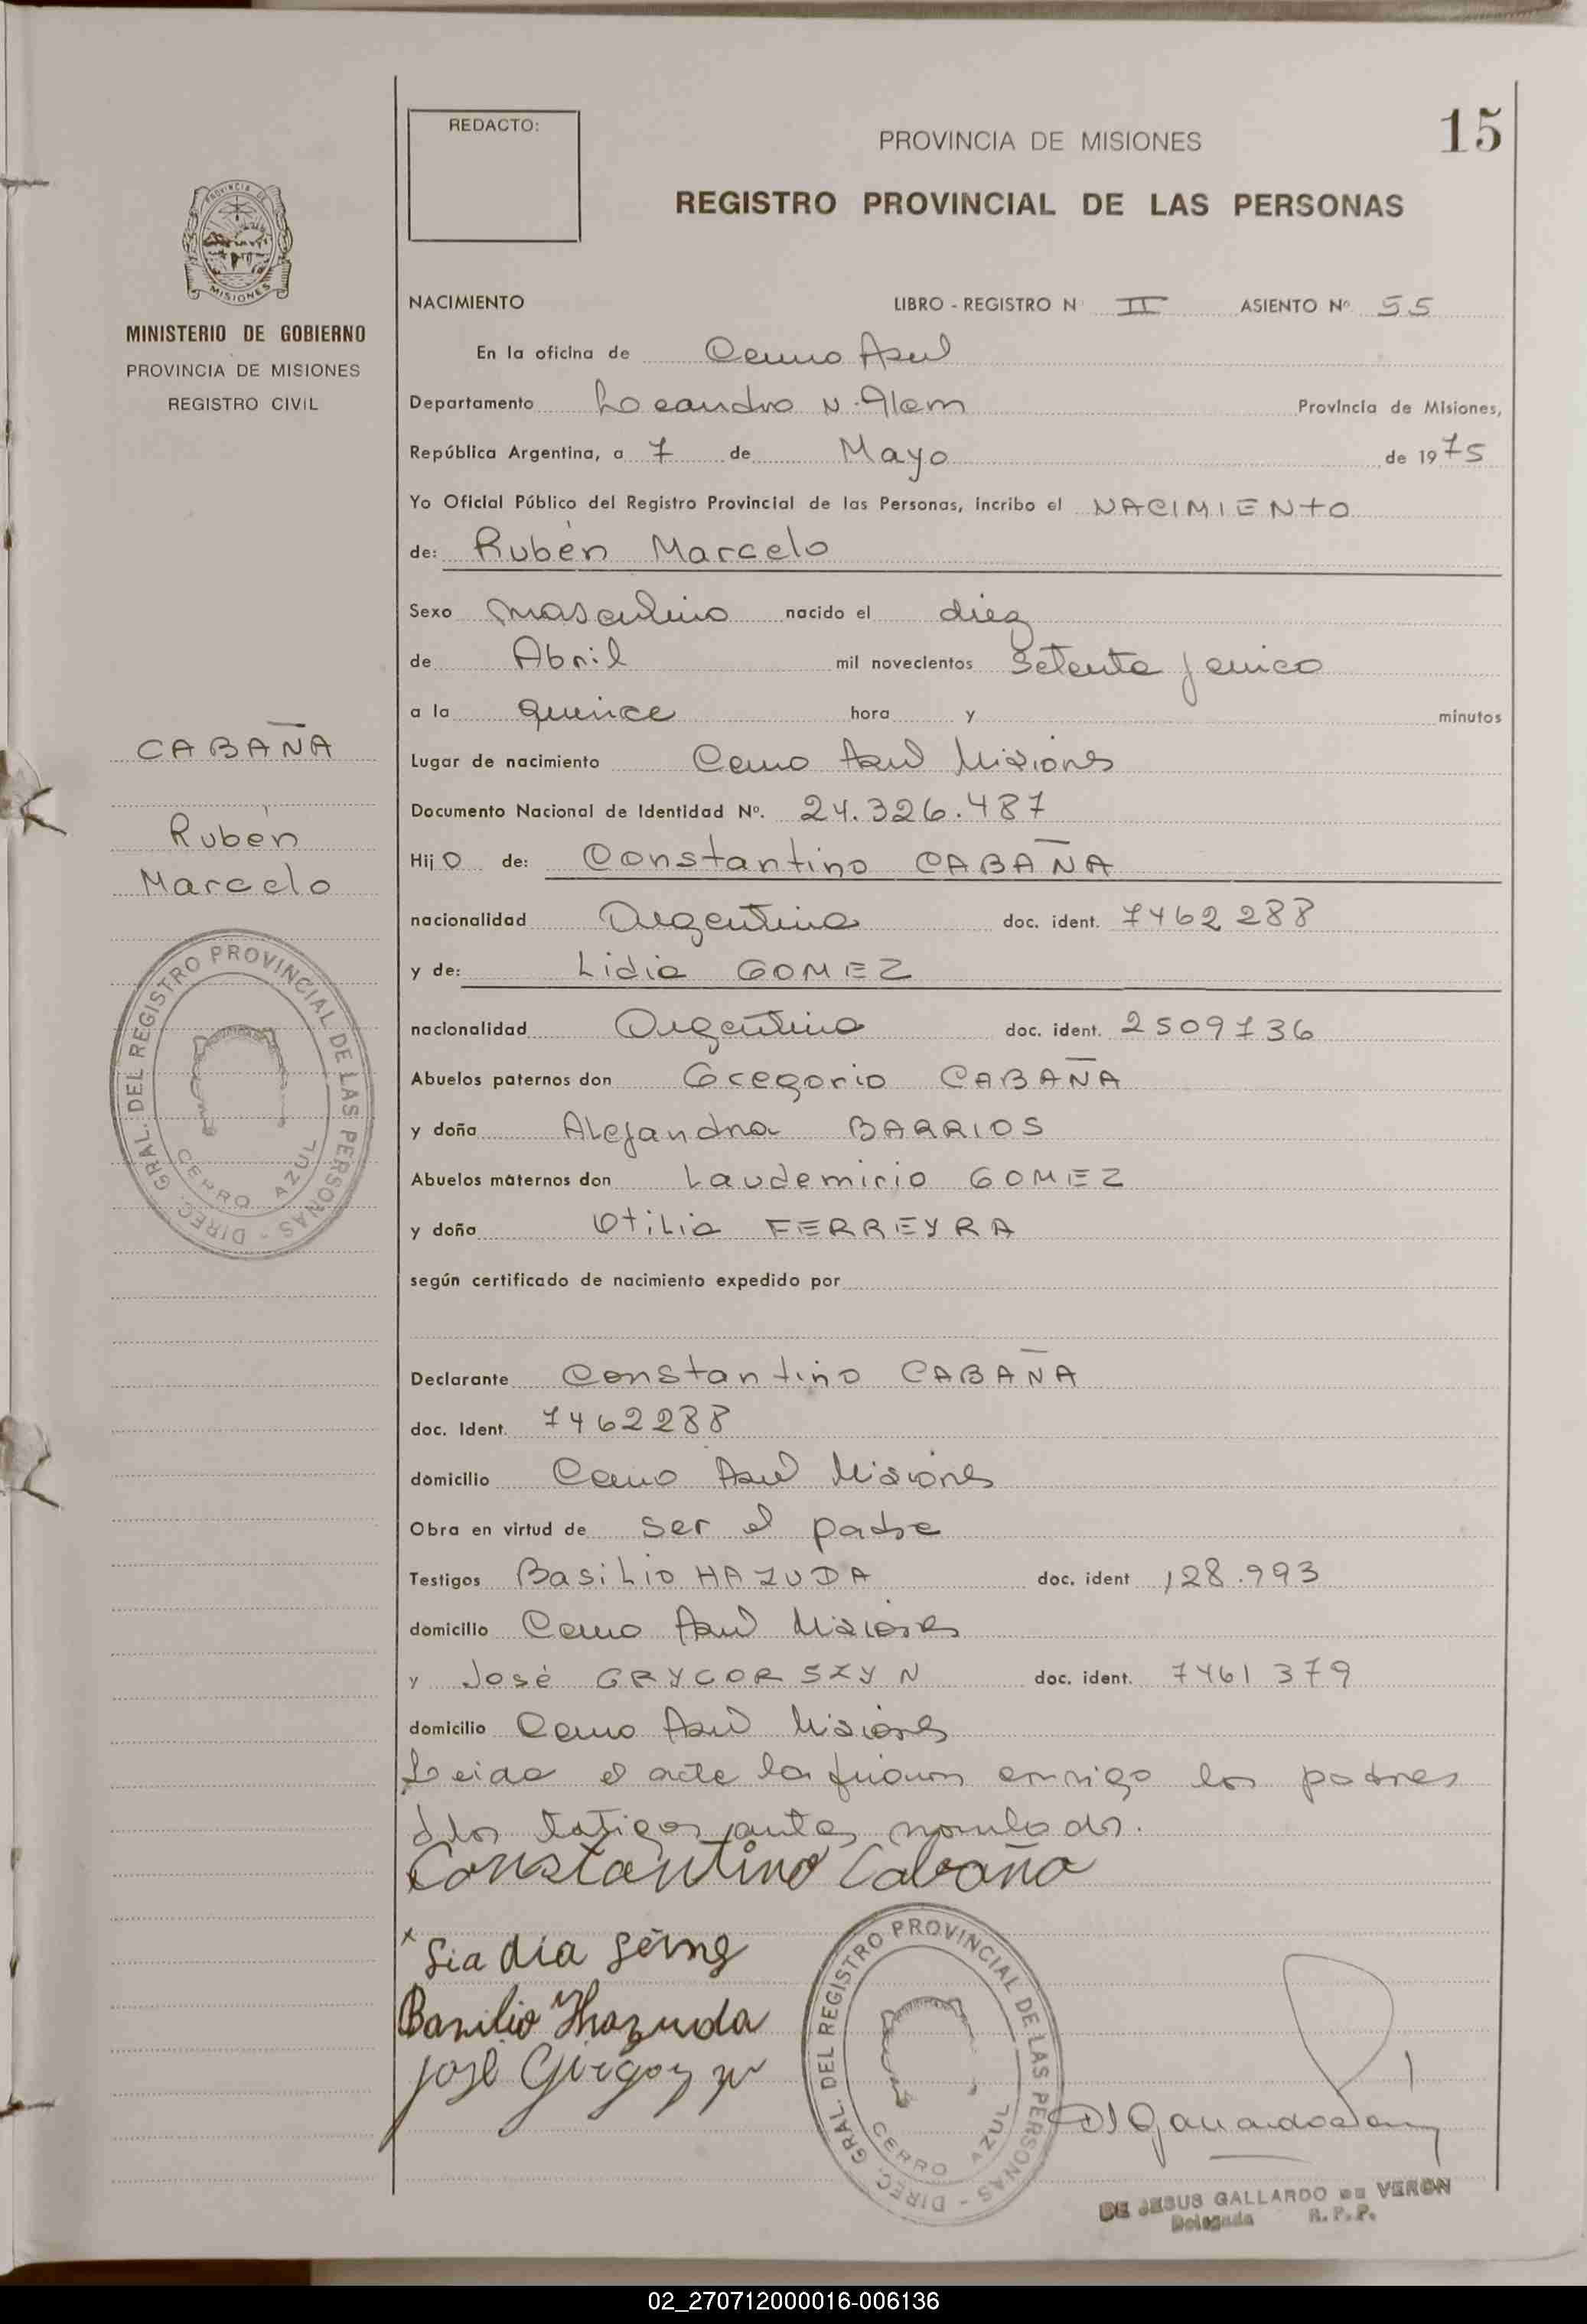 15
REDACTO:
PROVINCIA DE MISIONES
REGISTRO PROVINCIAL DE LAS PERSONAS
PROVINCIA DE
MISIONES
MINISTERIO DE GOBIERNO
PROVINCIA DE MISIONES
REGISTRO CIVIL
CABAÑA
Rubén
Marcelo
DIREC. GRAL. DEL REGISTRO PROVINCIAL DE LAS PERSONAS -
CERRO AZUL
NACIMIENTO LIBRO - REGISTRO N II ASIENTO Nº 55
En la oficina de Cerro Azul
Departamento Leandro N. Alem Provincia de Misiones,
República Argentina, a 7 de Mayo de 1975
Yo Oficial Público del Registro Provincial de las Personas, incribo el NACIMIENTO
de: Rubén Marcelo
Sexo masculino nacido el diez
de Abril mil novecientos setenta y cinco
a la quince hora y minutos
Lugar de nacimiento Cerro Azul Misiones
Documento Nacional de Identidad Nº. 24.326.487
Hijo de: Constantino CABAÑA
nacionalidad Argentina doc. ident. 7462288
y de: Lidia GOMEZ
nacionalidad Argentina doc. ident. 2509736
Abuelos paternos don Gregorio CABAÑA
y doña Alejandra BARRIOS
Abuelos maternos don Laudemirio GOMEZ
y doña Otilia FERREYRA
según certificado de nacimiento expedido por
Declarante Constantino CABAÑA
doc. Ident. 7462288
domicilio Cerro Azul Misiones
Obra en virtud de ser el padre
Testigos Basilio HAZUDA doc. ident 128.993
domicilio Cerro Azul Misiones
y José GRYGORSZYN doc. ident. 7461379
domicilio Cerro Azul Misiones
Leida el acta la firman conmigo los padres
y los testigos antes nombrados.
Constantino Cabaña
Basilio Hazuda
José
DIREC. GRAL. DEL REGISTRO PROVINCIAL DE LAS PERSONAS -
CERRO AZUL
DE JESUS GALLARDO DE VERON
Delegada R. P. P.
02_270712000016-006136